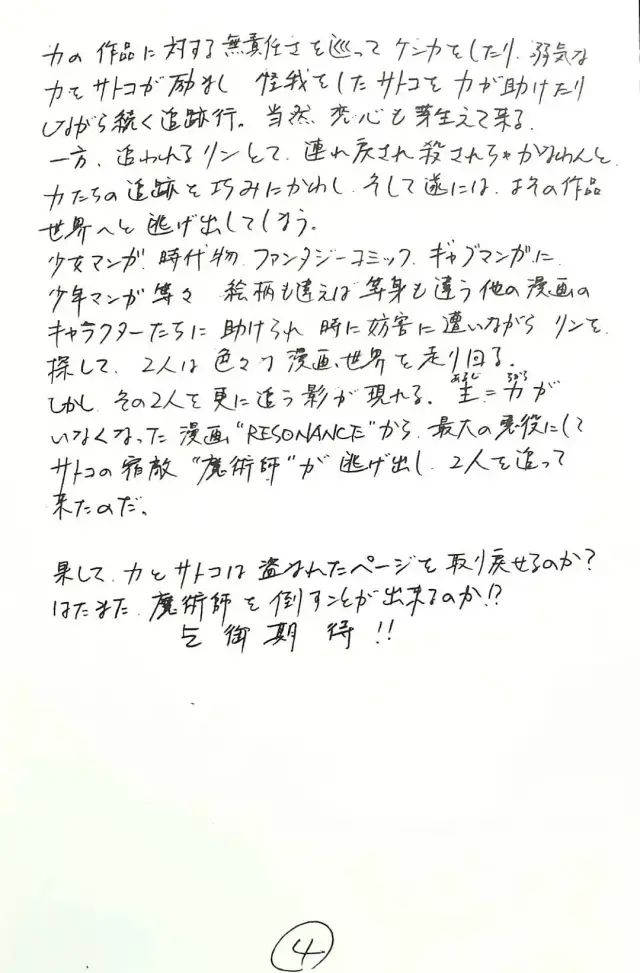 力の作品に対する無責任さを巡ってケンカをしたり、弱気な
力をサトコが励まし 怪我をしたサトコを力が助けたり
しながら続く追跡行。当然 恋心も芽生えて来る。
一方、追われるリンとて、連れ戻され殺されちゃかなわんと、
力たちの追跡を巧みにかわし、そして遂には、よその作品
世界へと逃げ出してしまう。
少女マンガ、時代物、ファンタジーコミック、ギャグマンガに
少年マンガ等々 絵柄も違えば等身も違う他の漫画の
キャラクターたちに助けられ 時に妨害に遭いながら リンを
探して、2人は色々な漫画世界を走り回る。
しかし、その2人を更に追う影が現れる。主=力が
いなくなった漫画“RESONANCE”から、最大の悪役にして
サトコの宿敵“魔術師”が逃げ出し、2人を追って
来たのだ。
果して、力とサトコは盗まれたページを取り戻せるのか?
はたまた、魔術師を倒すことが出来るのか!?
乞御期待!!
4